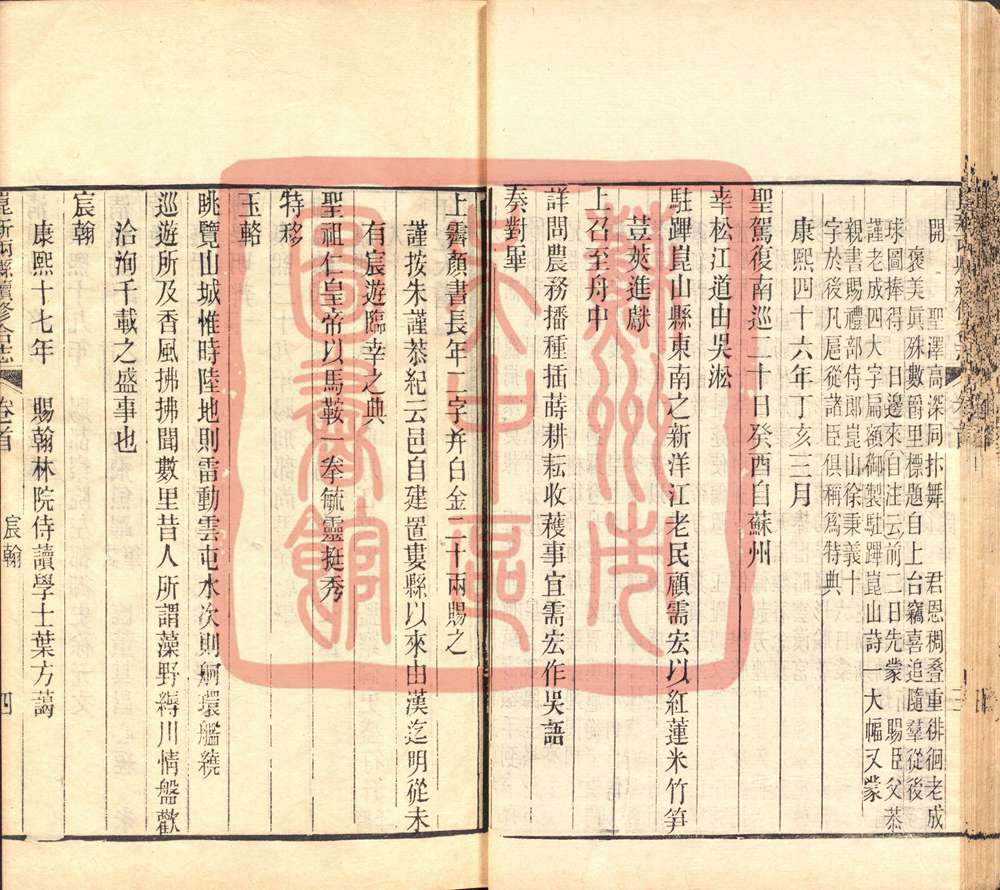 開 聖澤高深同抃舞 君恩稠叠重徘徊老成
褒美眞殊數爵里標題自上台竊喜追隨羣從後
球圖捧得日邊來自注云前二日先蒙 賜臣父恭
謹老成四大字扁額御製駐蹕崑山詩一大幅又蒙
親書賜禮部侍郎崑山徐秉義十
字於後凡扈從諸臣俱稱爲特典
康熙四十六年丁亥三月
聖駕復南巡二十日癸酉自蘇州
幸松江道由吳淞
駐蹕崑山縣東南之新洋江老民顧需宏以紅蓮米竹笋
荳莢進獻
上召至舟中
詳問農務播種插蒔耕耘收穫事宜需宏作吳語
奏對畢
上霽顏書長年二字幷白金二十兩賜之
謹按朱謹恭紀云邑自建置婁縣以來由漢迄明從未
有宸遊臨幸之典
聖祖仁皇帝以馬鞍一拳毓靈挺秀
特移
玉輅
眺覽山城惟時陸地則雷動雲屯水次則舸環艦繞
巡遊所及香風拂拂聞數里昔人所謂藻野縟川情盤歡
洽洵千載之盛事也
宸翰
康熙十七年 賜翰林院侍讀學士葉方藹
崑新兩縣續修合志 卷首 宸翰 四
蘇州市
吳中區
圖書館